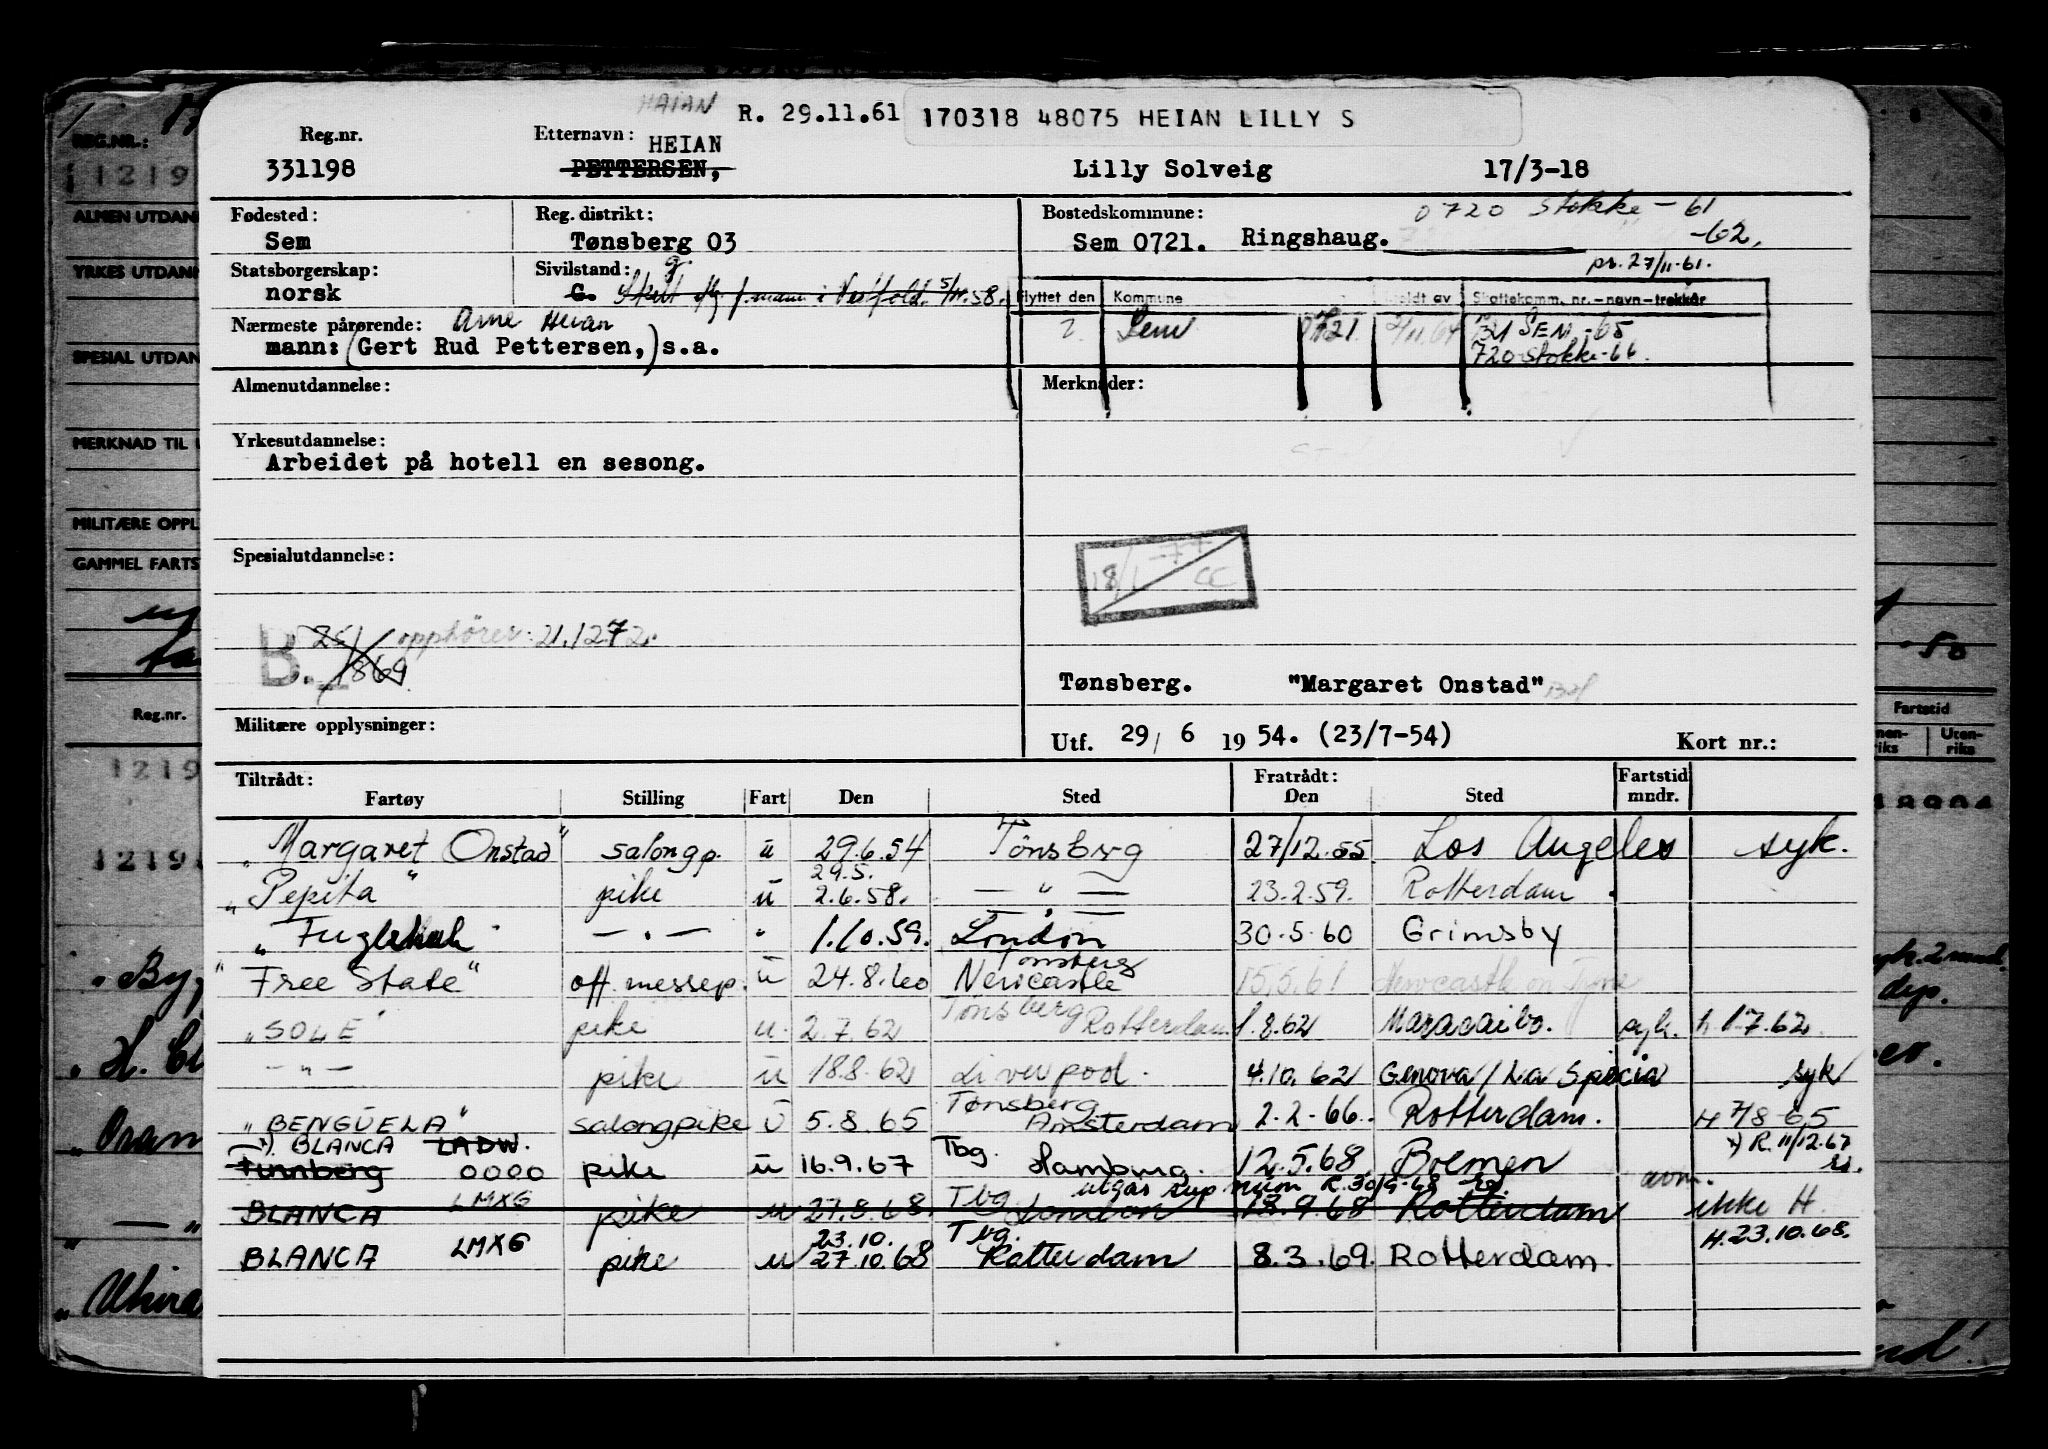 HAIAN R. 29.11.61 170318 48075 HEIAN LILLY S
Reg.nr. Etternavn: HEIAN
331198 PETTERSEN, Lilly Solveig 17/3-18
Fødested: Reg. distrikt: Bostedskommune: 0720 Stokke - 61
Sem Tønsberg 03 Sem 0721. Ringshaug. -62,
Statsborgerskap: Sivilstand: g pr. 27/11-61.
norsk G. Skilt f.mann i Vestfold. 5/11.58.
Flyttet den Kommune Meldt av Skattekomm. nr. - navn - trekkår
Nærmeste pårørende: Arne Heian
mann: (Gert Rud Pettersen,) s.a.
Sem 0721 2/11.64 SEM -65
720 Stokke-66.
Almenutdannelse: Merknader:
Yrkesutdannelse:
Arbeidet på hotell en sesong.
Spesialutdannelse:
18/1 -77 CC
B. opphører: 21.12.72.
1869
Tønsberg. "Margaret Onstad"
Militære opplysninger:
Utf. 29/ 6 19 54. (23/7-54) Kort nr.:
Tiltrådt: Fratrådt: Fartstid
Fartøy Stilling Fart Den Sted Den Sted mndr.
"Margaret Onstad" salongp. u 29.6.54 Tønsberg 27/12.55. Los Angeles syk.
29.5.
"Pepita" pike u 2.6.58. — " — 23.2.59. Rotterdam
— " —
" — . — " 1.10.59. London 30.5.60 Grimsby
Tønsberg
"Free State" off. messep. u 24.8.60 Newcastle 15.5.61 Newcastle on Tyne
Tønsberg
"SOLE" pike u. 2.7.62 Rotterdam 1.8.62 Maracaibo. syk. h. 1.7.62.
— " — pike u 18.8.62 Liverpool. 4.10.62 Genova/La Spezia syk
Tønsberg
"BENGUELA" salongpike u 5.8.65 Amsterdam 2.2-66. Rotterdam. H 7/8-65
x). BLANCA LADW. x) R. 11/12.67
Tunnberg 0000 pike u 16.9.67 Tbg. Hamburg. 12.5.68 Bremen
utgår R. 30/9-68
BLANCA LMXG pike u 27.8.68 Tbg London 18.9.68 Rotterdam ikke H
23.10. Tbg. H. 23.10.68.
BLANCA LMXG pike u 27.10.68 Rotterdam 8.3.69. Rotterdam.
REG.NR.:
1219
ALMEN UTDAN
YRKES UTDANN
SPESIAL UTDAN
MERKNAD TIL
MILITÆRE OPPL
GAMMEL FARTS
Reg.nr.
1219
1219
Fartstid
Uten-
riks
-50